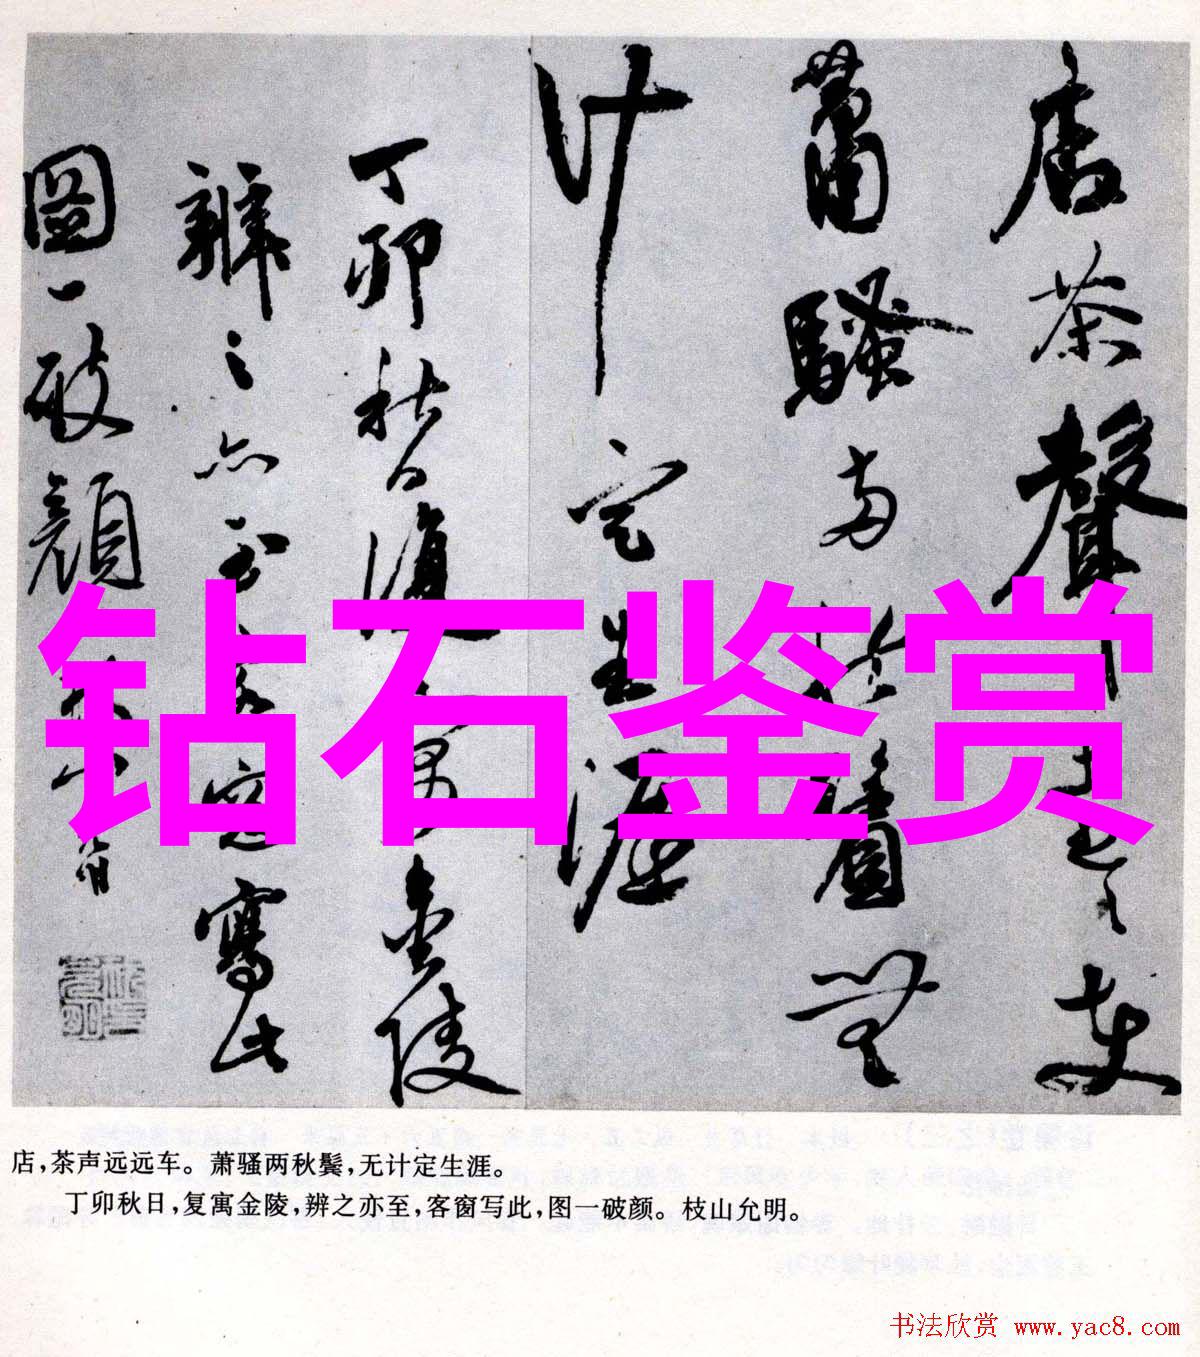 店茶聲遠遠車
蕭騷兩秋鬢無
計定生涯
丁卯秋日復寓金陵
辨之亦至客窗寫此
圖一破顏枝山允明
钻石鉴赏
店，茶声远远车。萧骚两秋鬓，无计定生涯。
丁卯秋日，复寓金陵，辨之亦至，客窗写此，图一破颜。枝山允明。
书法欣赏 www.yac8.com